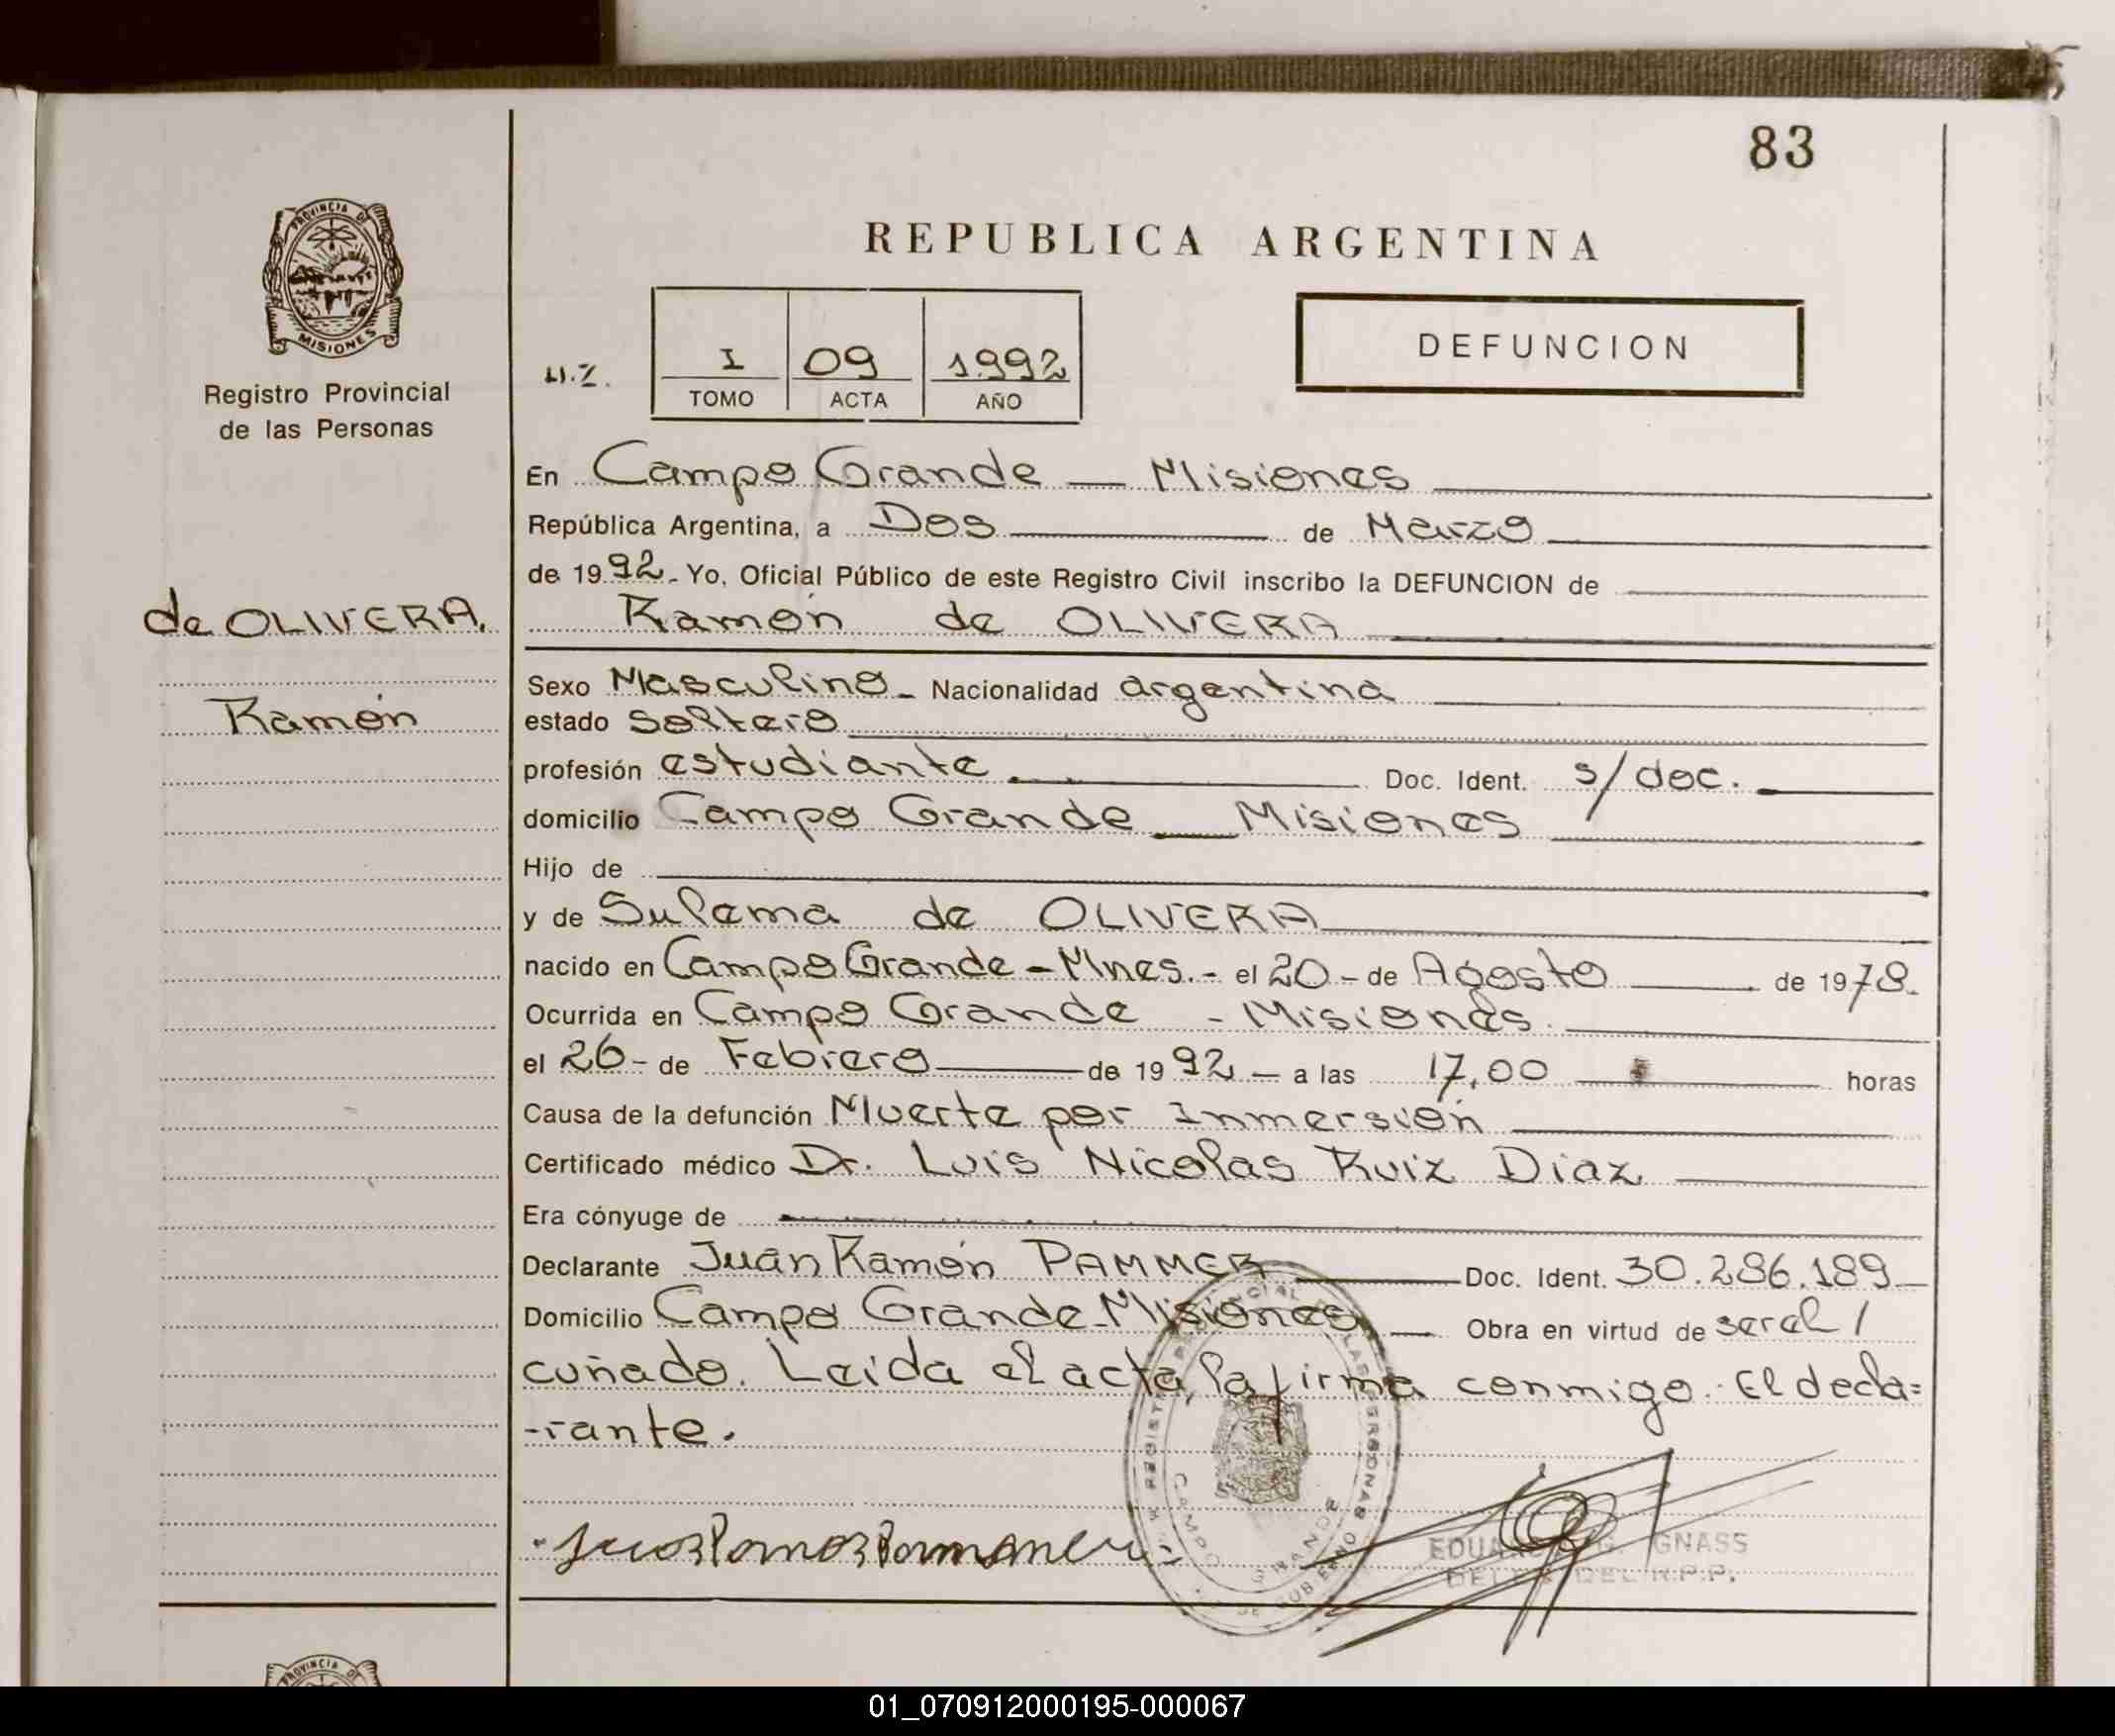 83
PROVINCIA DE
MISIONES
Registro Provincial
de las Personas
REPUBLICA ARGENTINA
I 09 1992
TOMO ACTA AÑO
DEFUNCION
En Campo Grande — Misiones
República Argentina, a Dos de Marzo
de 1992. Yo, Oficial Público de este Registro Civil inscribo la DEFUNCION de
de OLIVERA,
Ramón
Ramón de OLIVERA
Sexo Masculino - Nacionalidad argentina
estado soltero
profesión estudiante . Doc. Ident. s/doc.
domicilio Campo Grande — Misiones
Hijo de
y de Sulema de OLIVERA
nacido en Campo Grande - Mnes. - el 20 - de Agosto de 1978.
Ocurrida en Campo Grande - Misiones.
el 26 - de Febrero de 1992 — a las 17,00 horas
Causa de la defunción Muerte por Inmersión
Certificado médico Dr. Luis Nicolas Ruiz Diaz
Era cónyuge de
Declarante Juan Ramón PAMMER Doc. Ident. 30.286.189
Domicilio Campo Grande - Misiones — Obra en virtud de ser el /
cuñado. Leida el acta, la firma conmigo: El decla=
-rante.
CAMPO GRANDE
GNASS
DEL R.P.P.
PROVINCIA DE
01_070912000195-000067